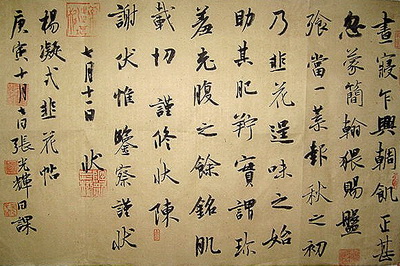 晝寢乍興輖飢正甚
忽蒙簡翰猥賜盤
飧當一葉報秋之初
乃韭花逞味之始
助其肥羜實謂珍
羞充腹之餘銘肌
載切謹修狀陳
謝伏惟鑒察謹狀
七月十一日狀
楊凝式韭花帖
庚寅十月日張光輝日課